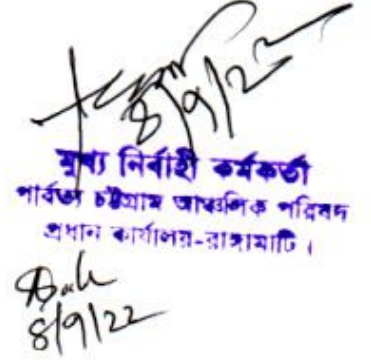 8/9/22
মুখ্য নির্বাহী কর্মকর্তা
পার্বত্য চট্টগ্রাম আঞ্চলিক পরিষদ
প্রধান কার্যালয়-রাঙ্গামাটি।
8/9/22